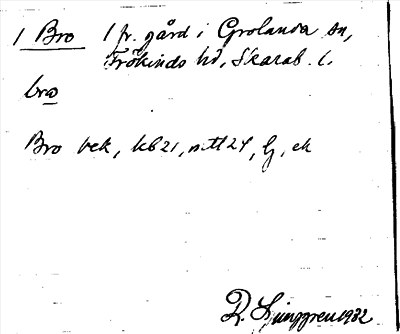 1 Bro 1 fr. gård i Grolanda sn,
Frökinds hd, Skarab. l.
bro
Bro bek, kb 21, mtl 24, lj, ek
R. Ljunggren 1932